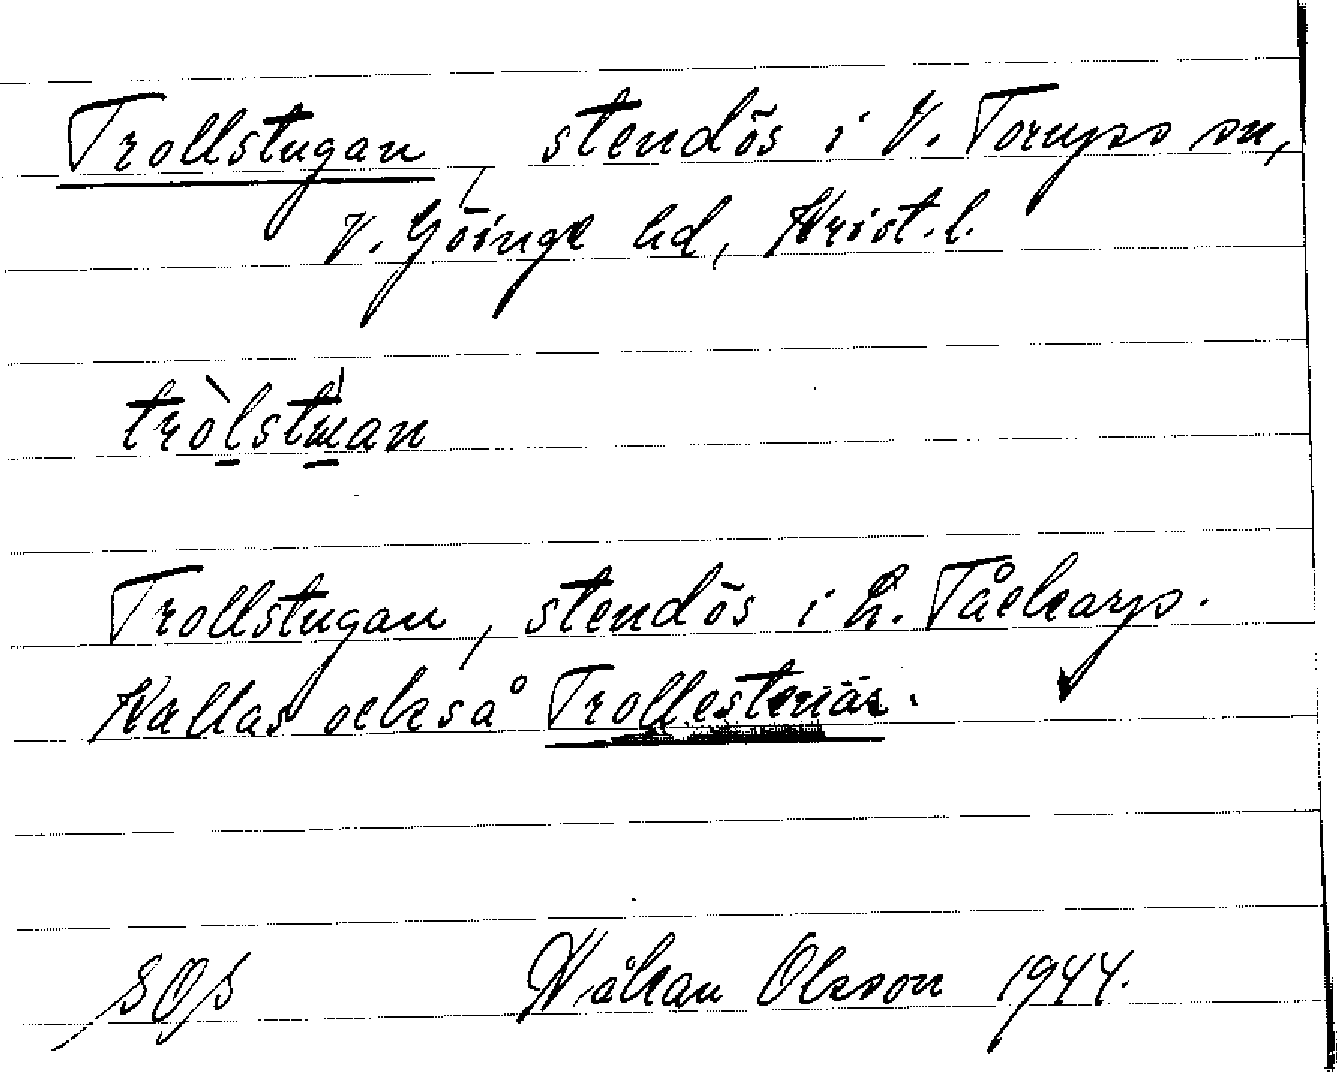 Trollstugan, stendös i V. Torups sn,
V. Göinge hd, Krist. l.
tròlstuan
Trollstugan, stendös i L. Tåckarp.
Kallas också Trollestenär.
SOS Håkan Olsson 1944.